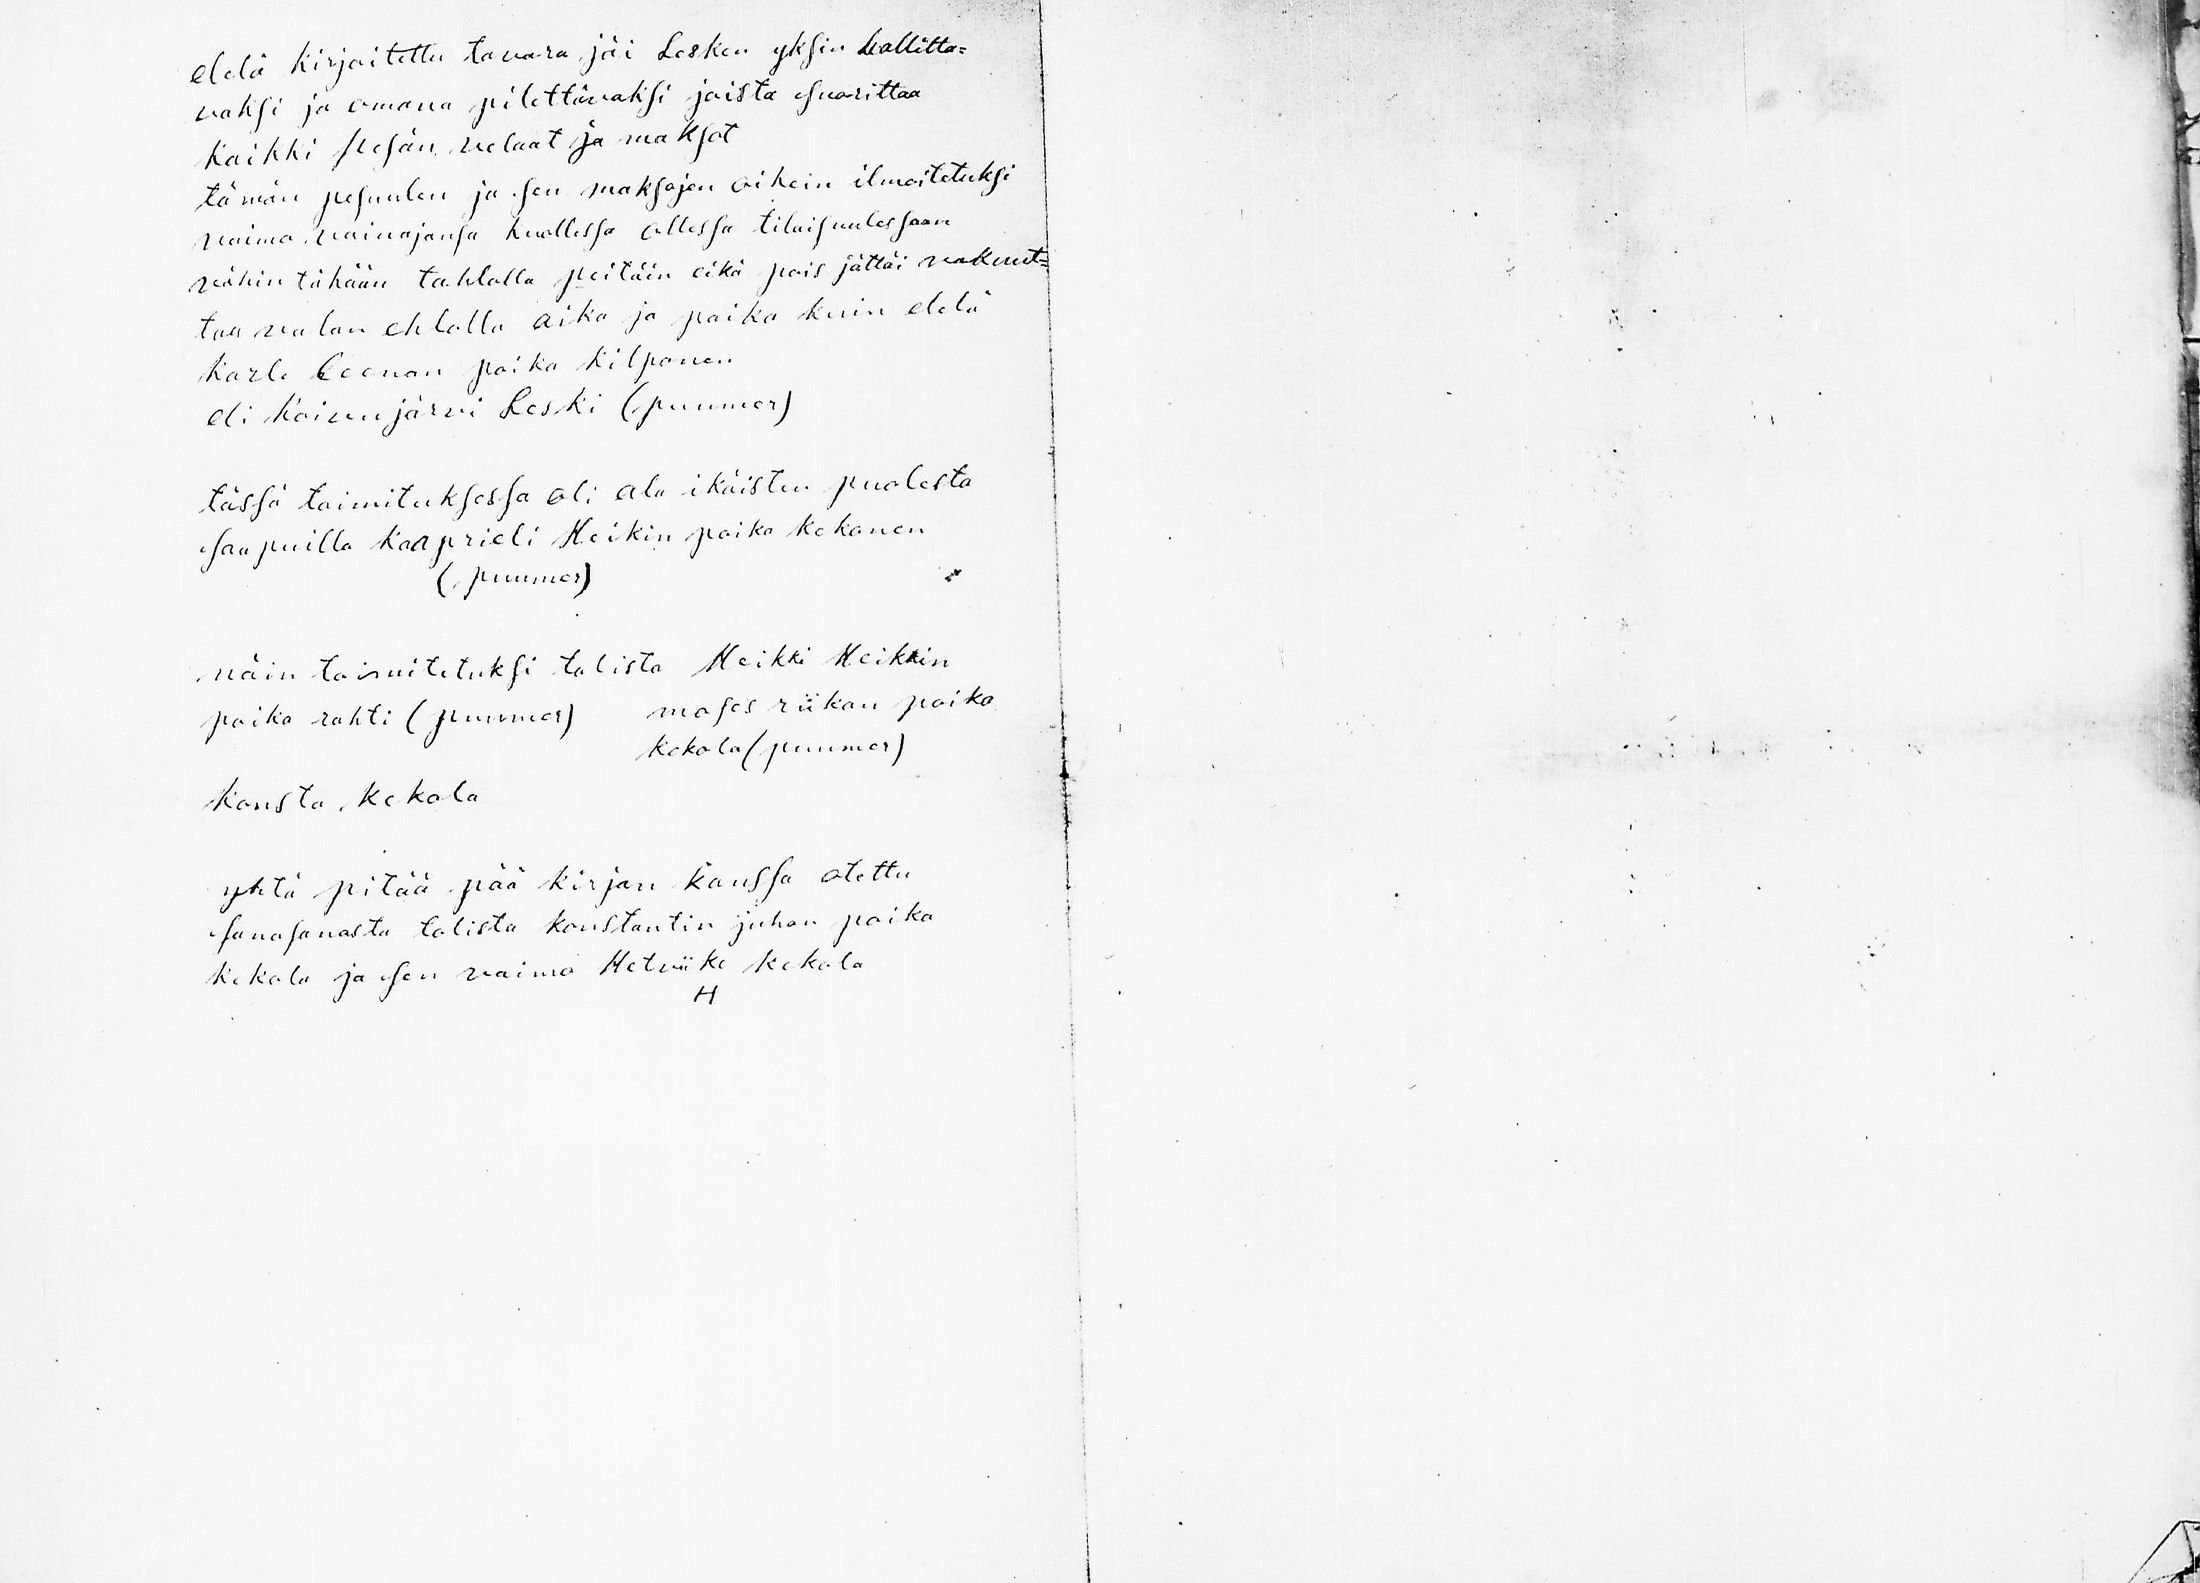 elelä kirjoitettu tavara jäi Lesken yksin hallitta=
vaksi ja omana pitettäväksi joista suorittaa
kaikki pesän velaat ja maksot
tämän pesuulen ja sen maksojen oikein ilmoitetuksi
vaimo vainajansa kuollessa ollessa tilaisuulessaan
nähin tähään tahlolla peitäin eikä pois jättäi vakuut=
taa valan ehlolla aika ja paika kuin elelä
karle Leenan poika kilponen
eli koivujärvi Leski (puumer)
tässä toimituksessa oli ala ikäisten puolesta
saapuilla kaaprieli Heikin poika kekonen
(puumer)
näin toimitetuksi tolista Heikki Heikkin
poika rahti (puumer) moses riikan poika
kekola (puumer)
konsta kekola
yhtä pitää pää kirjan kanssa otettu
sanasanasta tolista konstantin juhan poika
kekola ja sen vaimo Hetviike kekola
H